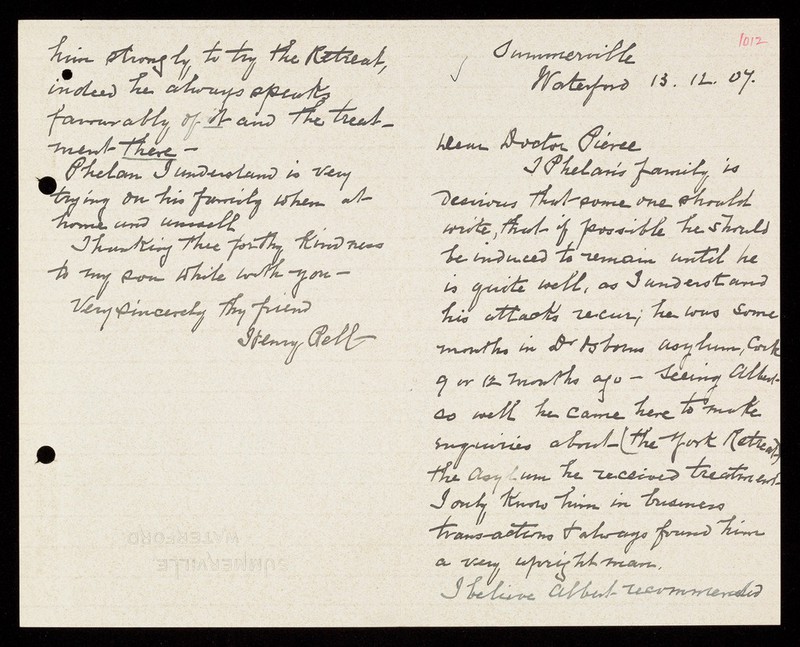 1012
Summerville
Waterford 13. 12. 07.
Dear Doctor Pierce
J Phelan's family is
desirous that some one should
write, that if possible he should
be induced to remain until he
is quite well, as I understand
his attacks recur; he was some
months in Dr Osborns asylum, Cork
9 or 12 months ago - seeing Albert
so well he came here to make
enquiries about (the York Retreat)
the asylum he received treatment
I only know him in business
transactions & always found him
a very upright man.
I believe Albert recommended
him strongly to try the Retreat,
indeed he always speaks
favourably of it and the treat-
ment there -
Phelan I understand is very
trying on his family when at
home and unwell
Thanking thee for thy kindness
to my son while with you -
Very sincerely thy friend
Henry Bell
SUMMERVILLE
WATERFORD